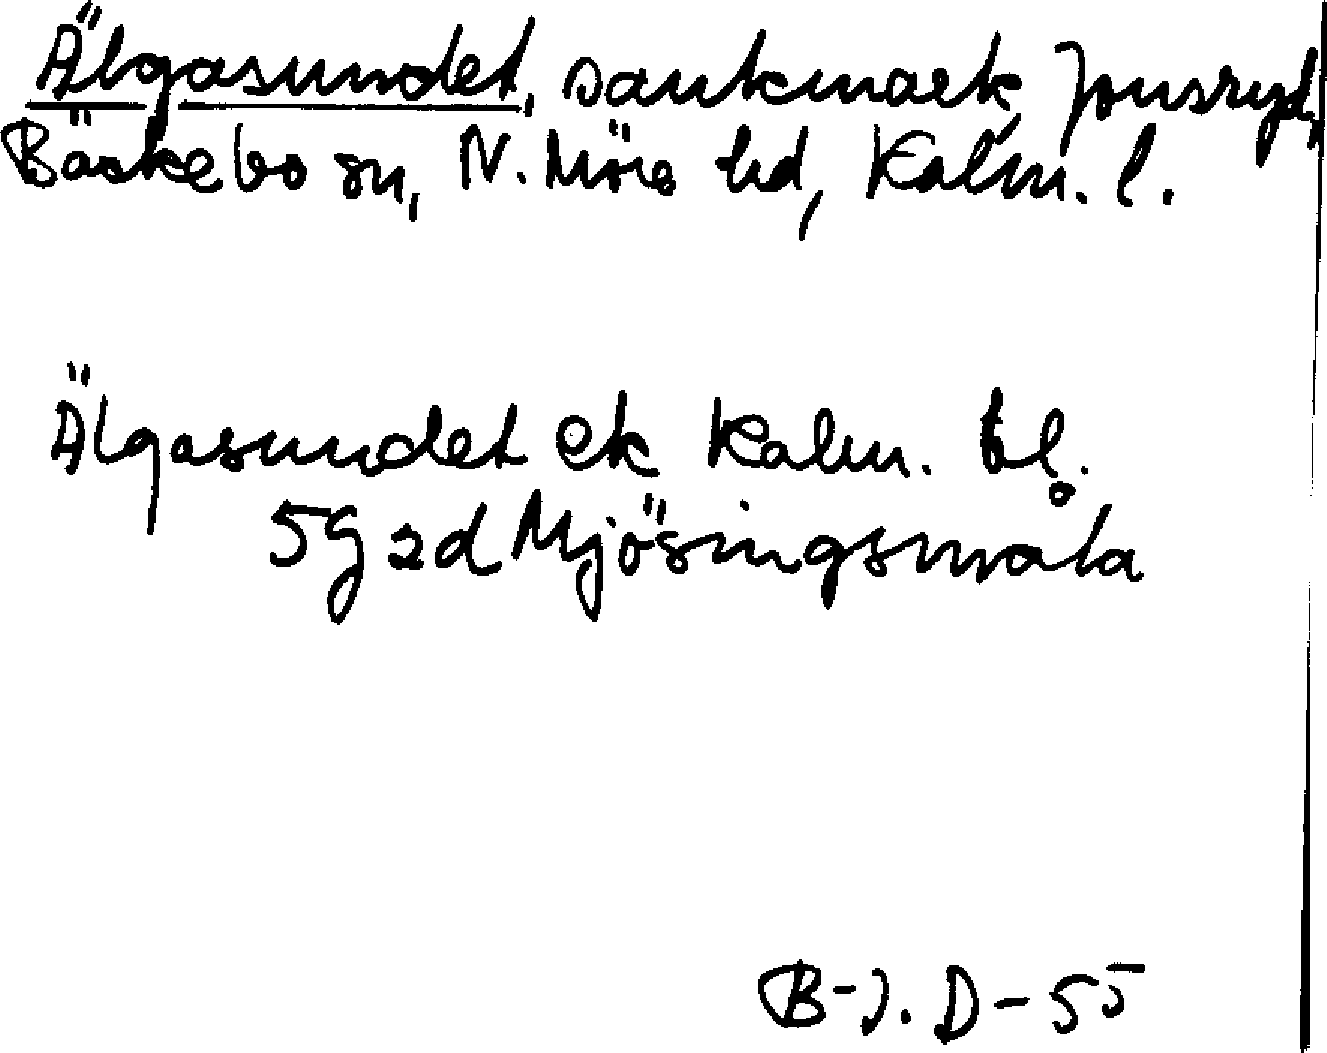 Älgasundet, sankmark, Jonsryd,
Bäckebo sn, N. Möre hd, Kalm. l.
Älgasundet ek Kalm. bl.
5G 2d Mjösingsmåla
B-J. D-55